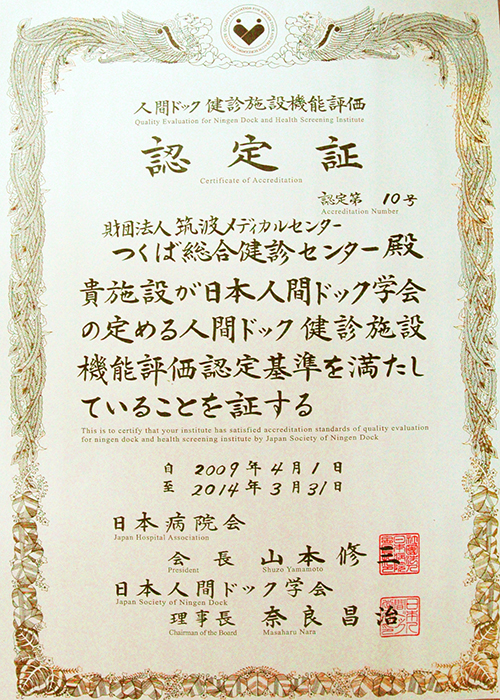 人間ドック 健診施設機能評価
Quality Evaluation for Ningen Dock and Health Screening Institute
認定証
Certificate of Accreditation
認定第 10号
Accreditation Number
財団法人 筑波メディカルセンター
つくば総合健診センター 殿
貴施設が日本人間ドック学会
の定める人間ドック 健診施設
機能評価認定基準を満たし
ていることを証する
This is to certify that your institute has satisfied accreditation standards of quality evaluation
for ningen dock and health screening institute by Japan Society of Ningen Dock
自 2009年4月1日
至 2014年3月31日
日本病院会
Japan Hospital Association
会長 山本修三
President Shuzo Yamamoto
日本人間ドック学会
Japan Society of Ningen Dock
理事長 奈良昌治
Chairman of the Board Masaharu Nara